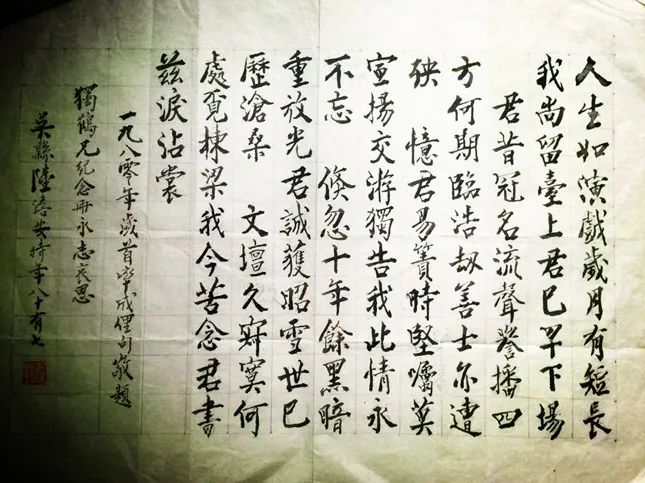 人生如演戲歲月有短長
我尚留臺上君已早下場
君昔冠名流聲譽播四
方何期臨浩劫善士亦遭
殃 憶君易簀時堅囑莫
宣揚交游獨告我此情永
不忘 倏忽十年餘黑暗
重放光君誠獲昭雪世已
歷滄桑 文壇久寂寞何
處覓棟梁我今苦念君書
茲淚沾裳
一九八零年歲首率成俚句敬題
獨鶴兄紀念冊永志哀思
吳縣陸澹安時年八十有七